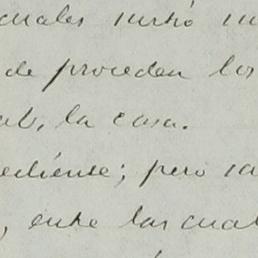 cuales
de proceden los
la casa.
ediente; pero
, entre las cual